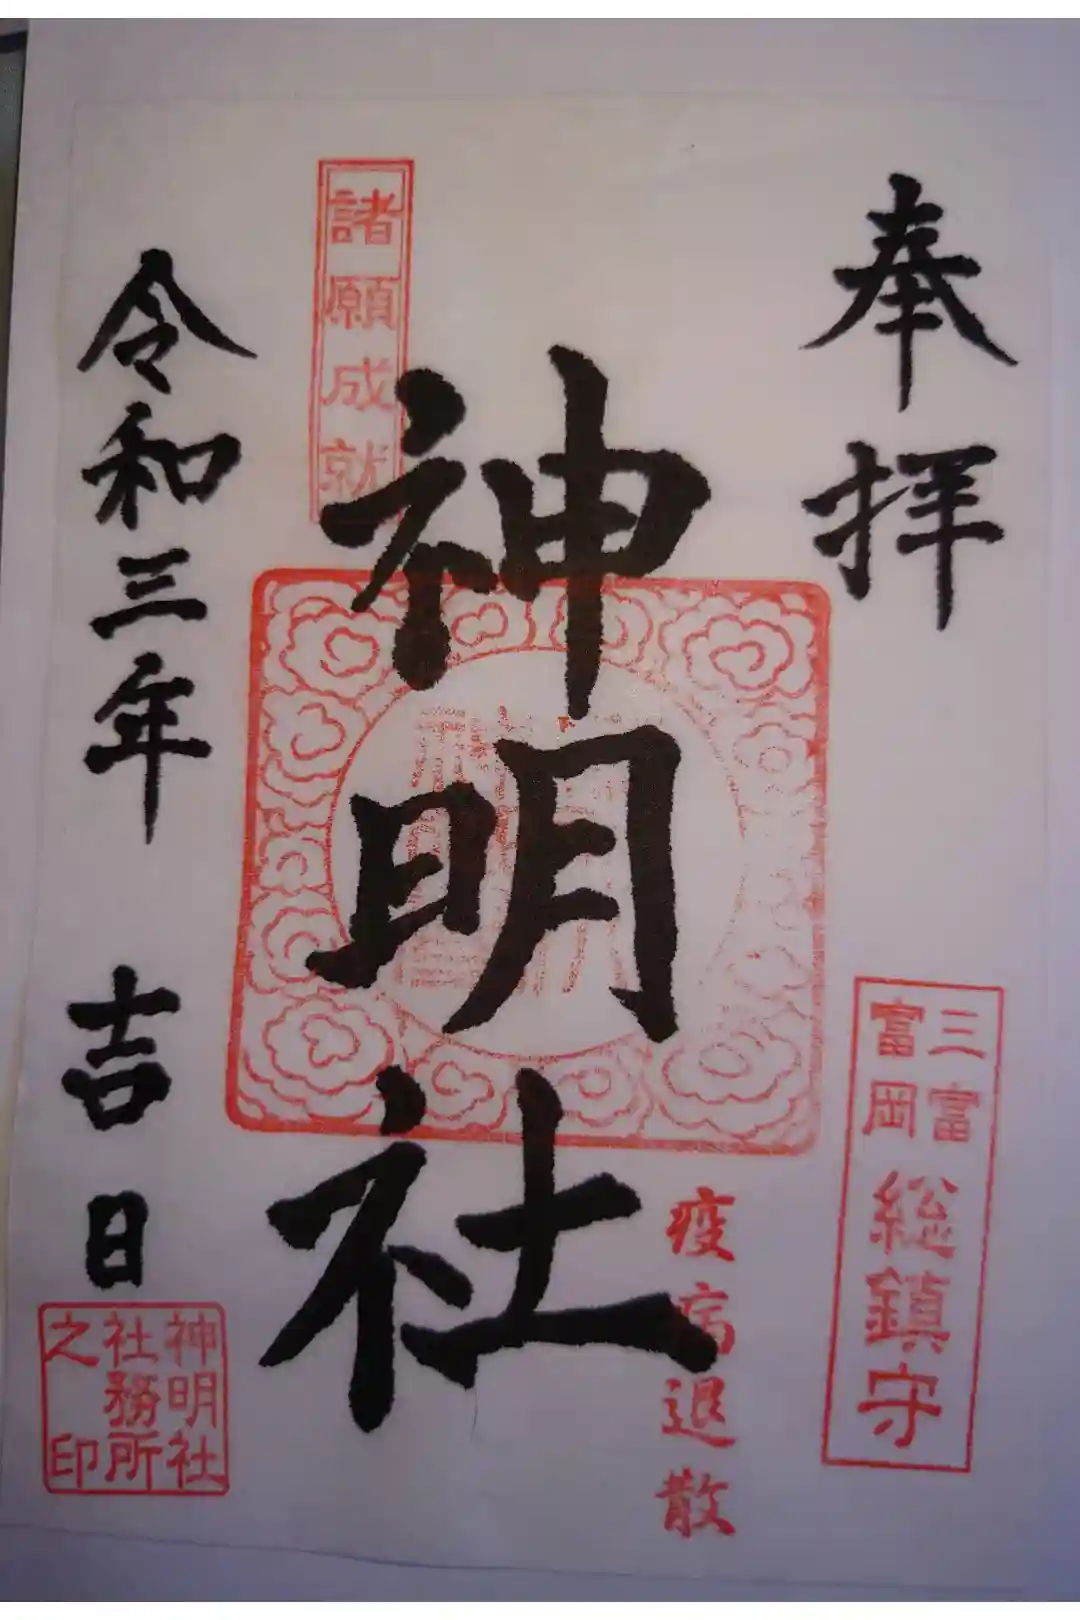 奉拝
三富
富岡
総鎮守
疫病退散
神明社
諸願成就
令和三年 吉日
神明社
社務所
之印